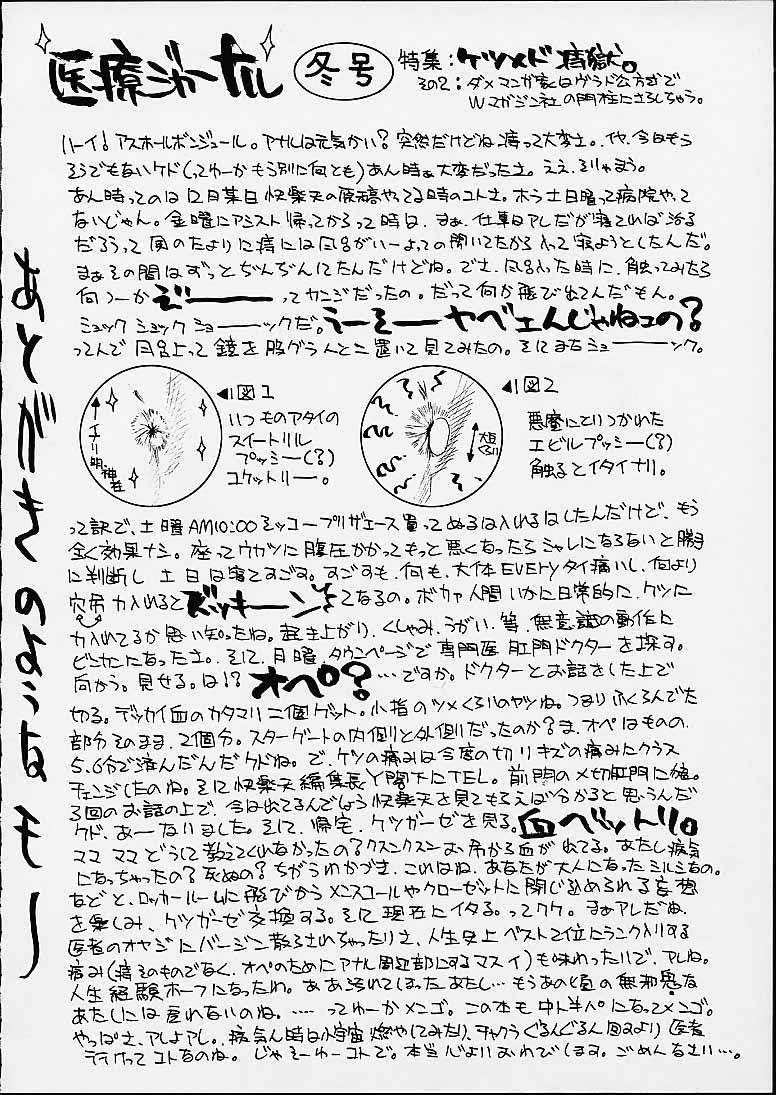 医療ジャーナル
冬号
特集：ケツメド痔獄。
その2：ダメマンガ家はヴラド公方式で
Wマガジン社の門柱にさらしちゃう。
ハーイ！アスホールボンジュール。アナルは元気かい？突然だけどね痔って大変さ。イヤ、今日もう
そうでもないケド（ってゆーかもう別に何とも）あん時ぁ大変だったさ。ええ、そりゃもう。
あん時ってのは12月某日快楽天の原稿やってる時のコトさ。ホラ土日曜って病院やって
ないじゃん。金曜にアシスト帰ってからって時は、まぁ、仕事はアレだが寝てれば治る
だろうって風のたよりに痔には風呂がいーよっての聞いてたから入って寝ようとしたんだ。
まぁその間はずっとぢんぢんしてたんだけどね。でさ、風呂入った時に、触ってみたら
何つーかぞーーってカンジだったの。だって何か飛び出てんだもん。
ショック ショック ショーーックだ。うーそーヤベェんじゃねェの？
ってんで風呂上って鏡を股グラんとこ置いて見てみたの。そしてまたショーーック。
あとがきのようなモノ
◀図1
いつものアタイの
スイートリル
プッシー(？)
ユケットリー。
◀図2
悪魔にとりつかれた
エビルプッシー(？)
触るとイタイナリ。
って訳で、土曜AM10:00ミッコープリザエース買ってぬるは入れるはしたんだけど、もう
全く効果ナシ。座ってウカツに腹圧かかってもっと悪くなったらシャレにならないと勝手
に判断し 土日は寝てすごす。すごすも、何も、大体EVERYタイ痛いし、何より
穴吊 力入れるとズッキーンてなるの。ボカァ人間いかに日常的に、ケツに
力入れてるか思い知ったね。起き上がり、くしゃみ、うがい、等、無意識の動作に
ビンカンになったさ。そして、月曜、タウンページで専門医 肛門ドクターを探す。
向かう。見せる。は!? オペ？…ですか。ドクターとお話をした上で
切る。デッカイ血のカタマリ二個ゲット。小指のツメくらいのヤツね。つまりふくらんでた
部分そのまま、2個分。スターゲートの内側と外側だったのか？ま、オペはものの、
5、6分で済んだんだケドね。で、ケツの痛みは今度の切りキズの痛みにクラス
チェンジしたのね。そして快楽天編集長Y閣下にTEL。前門の〆切肛門に痔。
3回のお話の上で、今は出てるんでしょう快楽天を見てもらえば分かると思うんだ
ケド、あーなりました。そして、帰宅、ケツガーゼを見る。血ベットリ。
ママ ママ どうして教えてくれなかったの？クスンクスンお吊から血が出てる。あたし病気
になっちゃったの？死ぬの？ちがうわかづき、これはね、あなたが大人になったシルシなの。
などと、ロッカールームに飛びかうメンスコールやクローゼットに閉じ込められる妄想
を楽しみ、ケツガーゼ交換する。そして現在にイタる。ってワケ。まぁアレだね、
医者のオヤジにバージン散らされちゃったりさ、人生史上ベスト2位にランク入りする
痛み（痔そのものでなく、オペのためにアナル周辺部にするマスイ）も味わったりで、アレね。
人生経験ホーフになったわ。ああ汚れてしまったあたし…もうあの頃の無邪気な
あたしには戻れないのね。……ってゆーかメンゴ。この本も中ト半パになってメンゴ。
やっぱさ、アレよアレ。病気ん時は小宇宙燃やしてみたり、チャクラぐるんぐるん回すより医者
行けってコトなのね。じゃそーゆーコトで。本当心よりおわびします。ごめんなさい…。